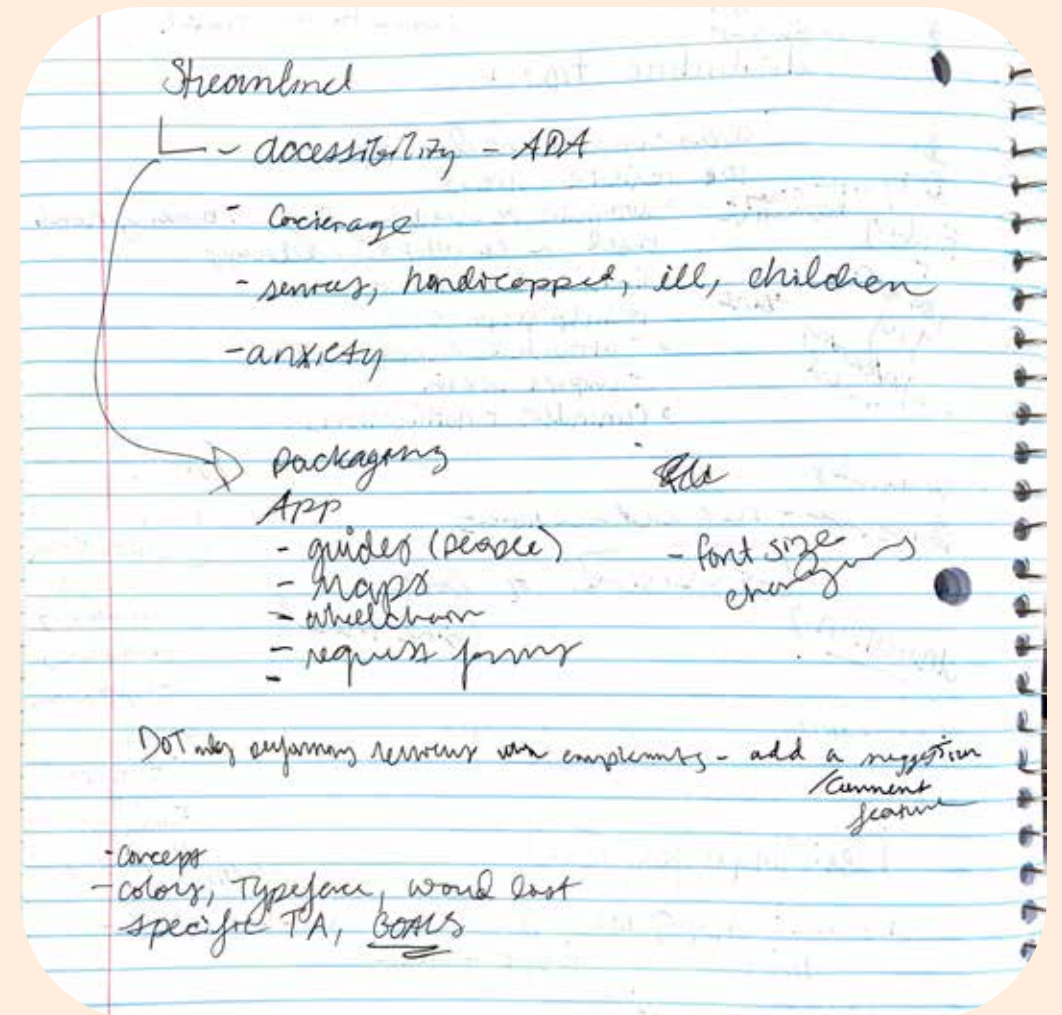 Streamlined
- accessibility - ADA
- Concierage
- seniors, handicapped, ill, children
- anxiety
Packaging
App
- guides (people)
- font size
changing
- Maps
- wheelchair
- request forms
-
DOT only performing reviews when complaints - add a suggestion
/comment
feature
- Concept
- colors, Typeface, word list
- specific TA, GOALS